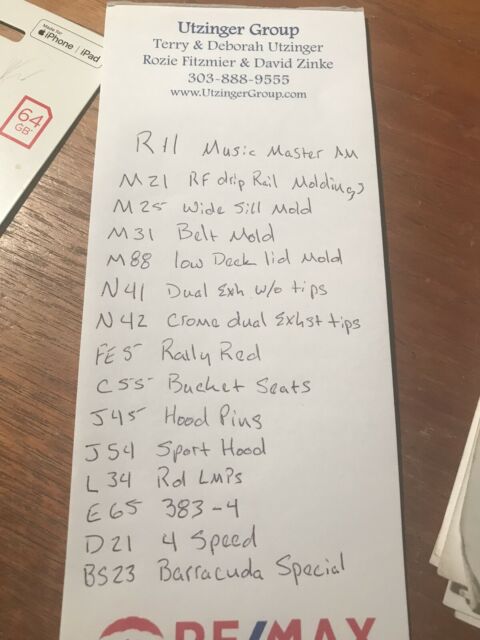 Made for
iPhone | iPad
64
GB*
Utzinger Group
Terry & Deborah Utzinger
Rozie Fitzmier & David Zinke
303-888-9555
www.UtzingerGroup.com
R11 Music Master AM
M21 RF drip Rail Moldings
M25 Wide Sill Mold
M31 Belt Mold
M88 low Deck lid Mold
N41 Dual Exh w/o tips
N42 Crome dual Exhst tips
FE5 Rally Red
C55 Bucket Seats
J45 Hood Pins
J54 Sport Hood
L34 Rd LMPs
E65 383-4
D21 4 Speed
BS23 Barracuda Special
RE/MAX